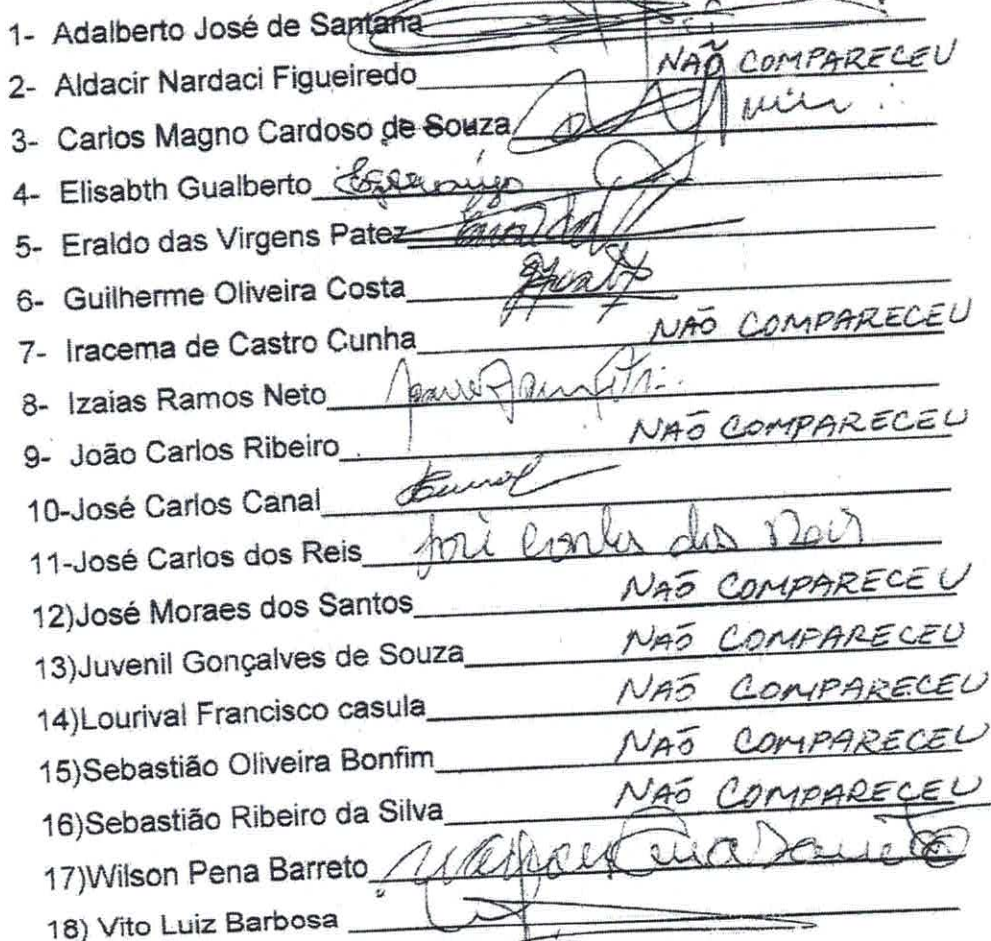 1- Adalberto José de Santana
2- Aldacir Nardaci Figueiredo NÃO COMPARECEU
3- Carlos Magno Cardoso de Souza
4- Elisabth Gualberto
5- Eraldo das Virgens Patez
6- Guilherme Oliveira Costa
7- Iracema de Castro Cunha NÃO COMPARECEU
8- Izaias Ramos Neto
9- João Carlos Ribeiro NÃO COMPARECEU
10-José Carlos Canal
11-José Carlos dos Reis José Carlos dos Reis
12)José Moraes dos Santos NÃO COMPARECEU
13)Juvenil Gonçalves de Souza NÃO COMPARECEU
14)Lourival Francisco casula NÃO COMPARECEU
15)Sebastião Oliveira Bonfim NÃO COMPARECEU
16)Sebastião Ribeiro da Silva NÃO COMPARECEU
17)Wilson Pena Barreto Wilson Pena Barreto
18) Vito Luiz Barbosa